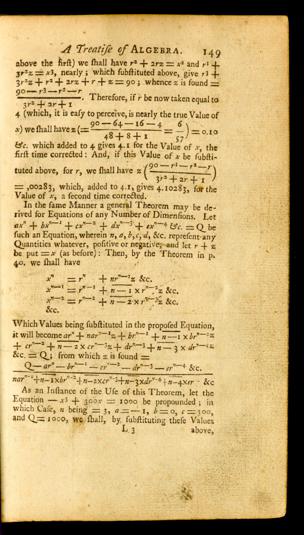 A Treatise of ALGEBRA. 149
above the first) we shall have r² + 2rz = x² and r³ +
3r²z = x³, nearly; which substituted above, give r³ +
3r²z + r² + 2rz + r + z = 90; whence z is found =
90 — r³ — r² — r
3r² + 2r + 1
. Therefore, if r be now taken equal to
4 (which, it is easy to perceive, is nearly the true Value of
x) we shall have z (= 90 — 64 — 16 — 4 / 48 + 8 + 1 = 6 / 57 ) = 0.10
&c. which added to 4 gives 4.1 for the Value of x, the
first time corrected: And, if this Value of x be substi-
tuted above, for r, we shall have z ( 90 — r³ — r² — r / 3r² + 2r + 1 )
= ,00283, which, added to 4.1, gives 4.10283, for the
Value of x, a second time corrected.
In the same Manner a general Theorem may be de-
rived for Equations of any Number of Dimensions. Let
axⁿ + bxⁿ⁻¹ + cxⁿ⁻² + dxⁿ⁻³ + exⁿ⁻⁴ &c. = Q be
such an Equation, wherein n, a, b, c, d, &c. represent any
Quantities whatever, positive or negative; and let r + z
be put = x (as before): Then, by the Theorem in p.
40. we shall have
xⁿ = rⁿ + nrⁿ⁻¹z &c.
xⁿ⁻¹ = rⁿ⁻¹ + n — 1 × rⁿ⁻²z &c.
xⁿ⁻² = rⁿ⁻² + n — 2 × rⁿ⁻³z &c.
&c.
Which Values being substituted in the proposed Equation,
it will become arⁿ + narⁿ⁻¹z + brⁿ⁻¹ + n — 1 × brⁿ⁻²z
+ crⁿ⁻² + n — 2 × crⁿ⁻³z + drⁿ⁻³ + n — 3 × drⁿ⁻⁴z
&c. = Q; from which z is found =
Q — arⁿ — brⁿ⁻¹ — crⁿ⁻² — drⁿ⁻³ — erⁿ⁻⁴ &c.
narⁿ⁻¹+n—1×brⁿ⁻²+n—2×crⁿ⁻³+n—3×drⁿ⁻⁴+n—4×er &c
As an Instance of the Use of this Theorem, let the
Equation — x³ + 300x = 1000 be propounded; in
which Case, n being = 3, a = — 1, b = 0, c = 300,
and Q = 1000, we shall, by substituting these Values
L 3 above,